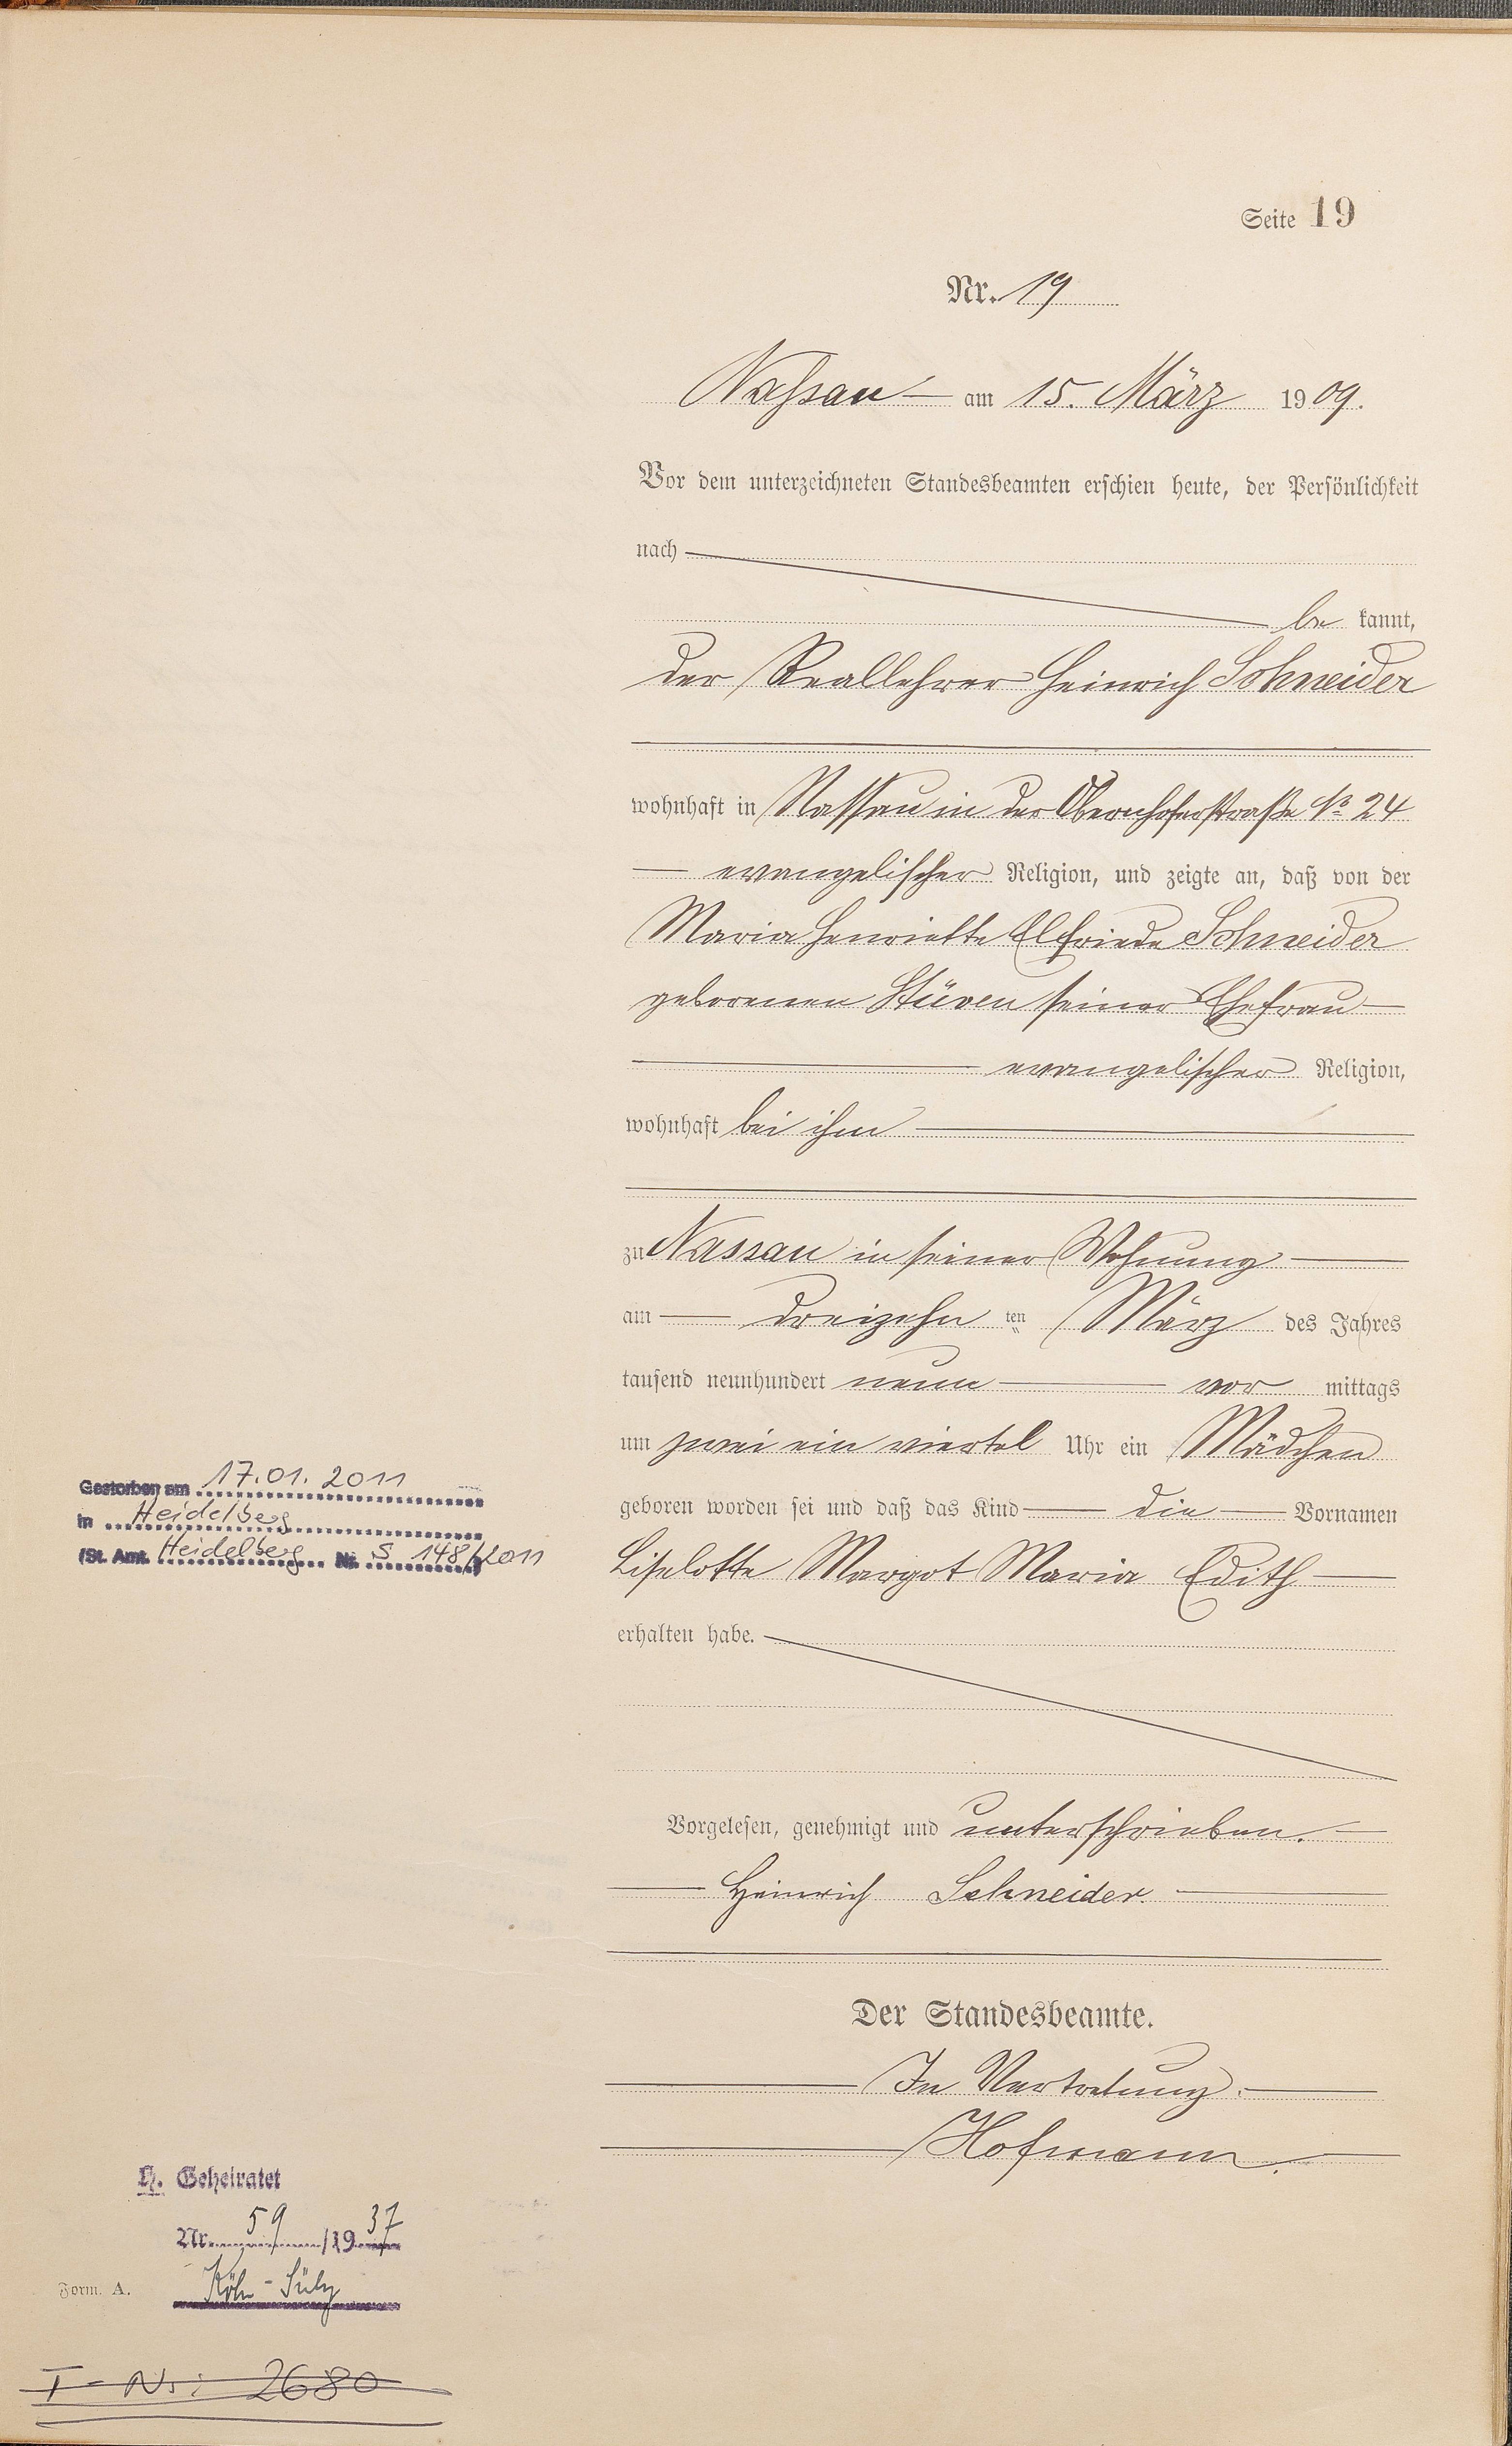 Seite 19
Nr. 19
Nassau am 15. März 1909.
Vor dem unterzeichneten Standesbeamten erschien heute, der Persönlichkeit
nach
be kannt,
der Reallehrer Heinrich Schneider
wohnhaft in Nassau in der Obernhoferstraße No 24
evangelischer Religion, und zeigte an, daß von der
Maria Henriette Elfriede Schneider
geborenen Stüven seiner Ehefrau
evangelischer Religion,
wohnhaft bei ihm
zu Nassau in seiner Wohnung
am dreizehn ten März des Jahres
tausend neunhundert neun vor mittags
um zwei ein viertel Uhr ein Mädchen
geboren worden sei und daß das Kind die Vornamen
Liselotte Margot Maria Edith
erhalten habe.
Vorgelesen, genehmigt und unterschrieben.
Heinrich Schneider.
Der Standesbeamte.
In Vertretung.
Hofmann.
Gestorben am 17.01.2011
in Heidelberg
(St. Amt. Heidelberg Nr. S 148/2011
h. Geheiratet
Nr. 59/1937
Köln-Sülz
Form. A.
I-Nr: 2680